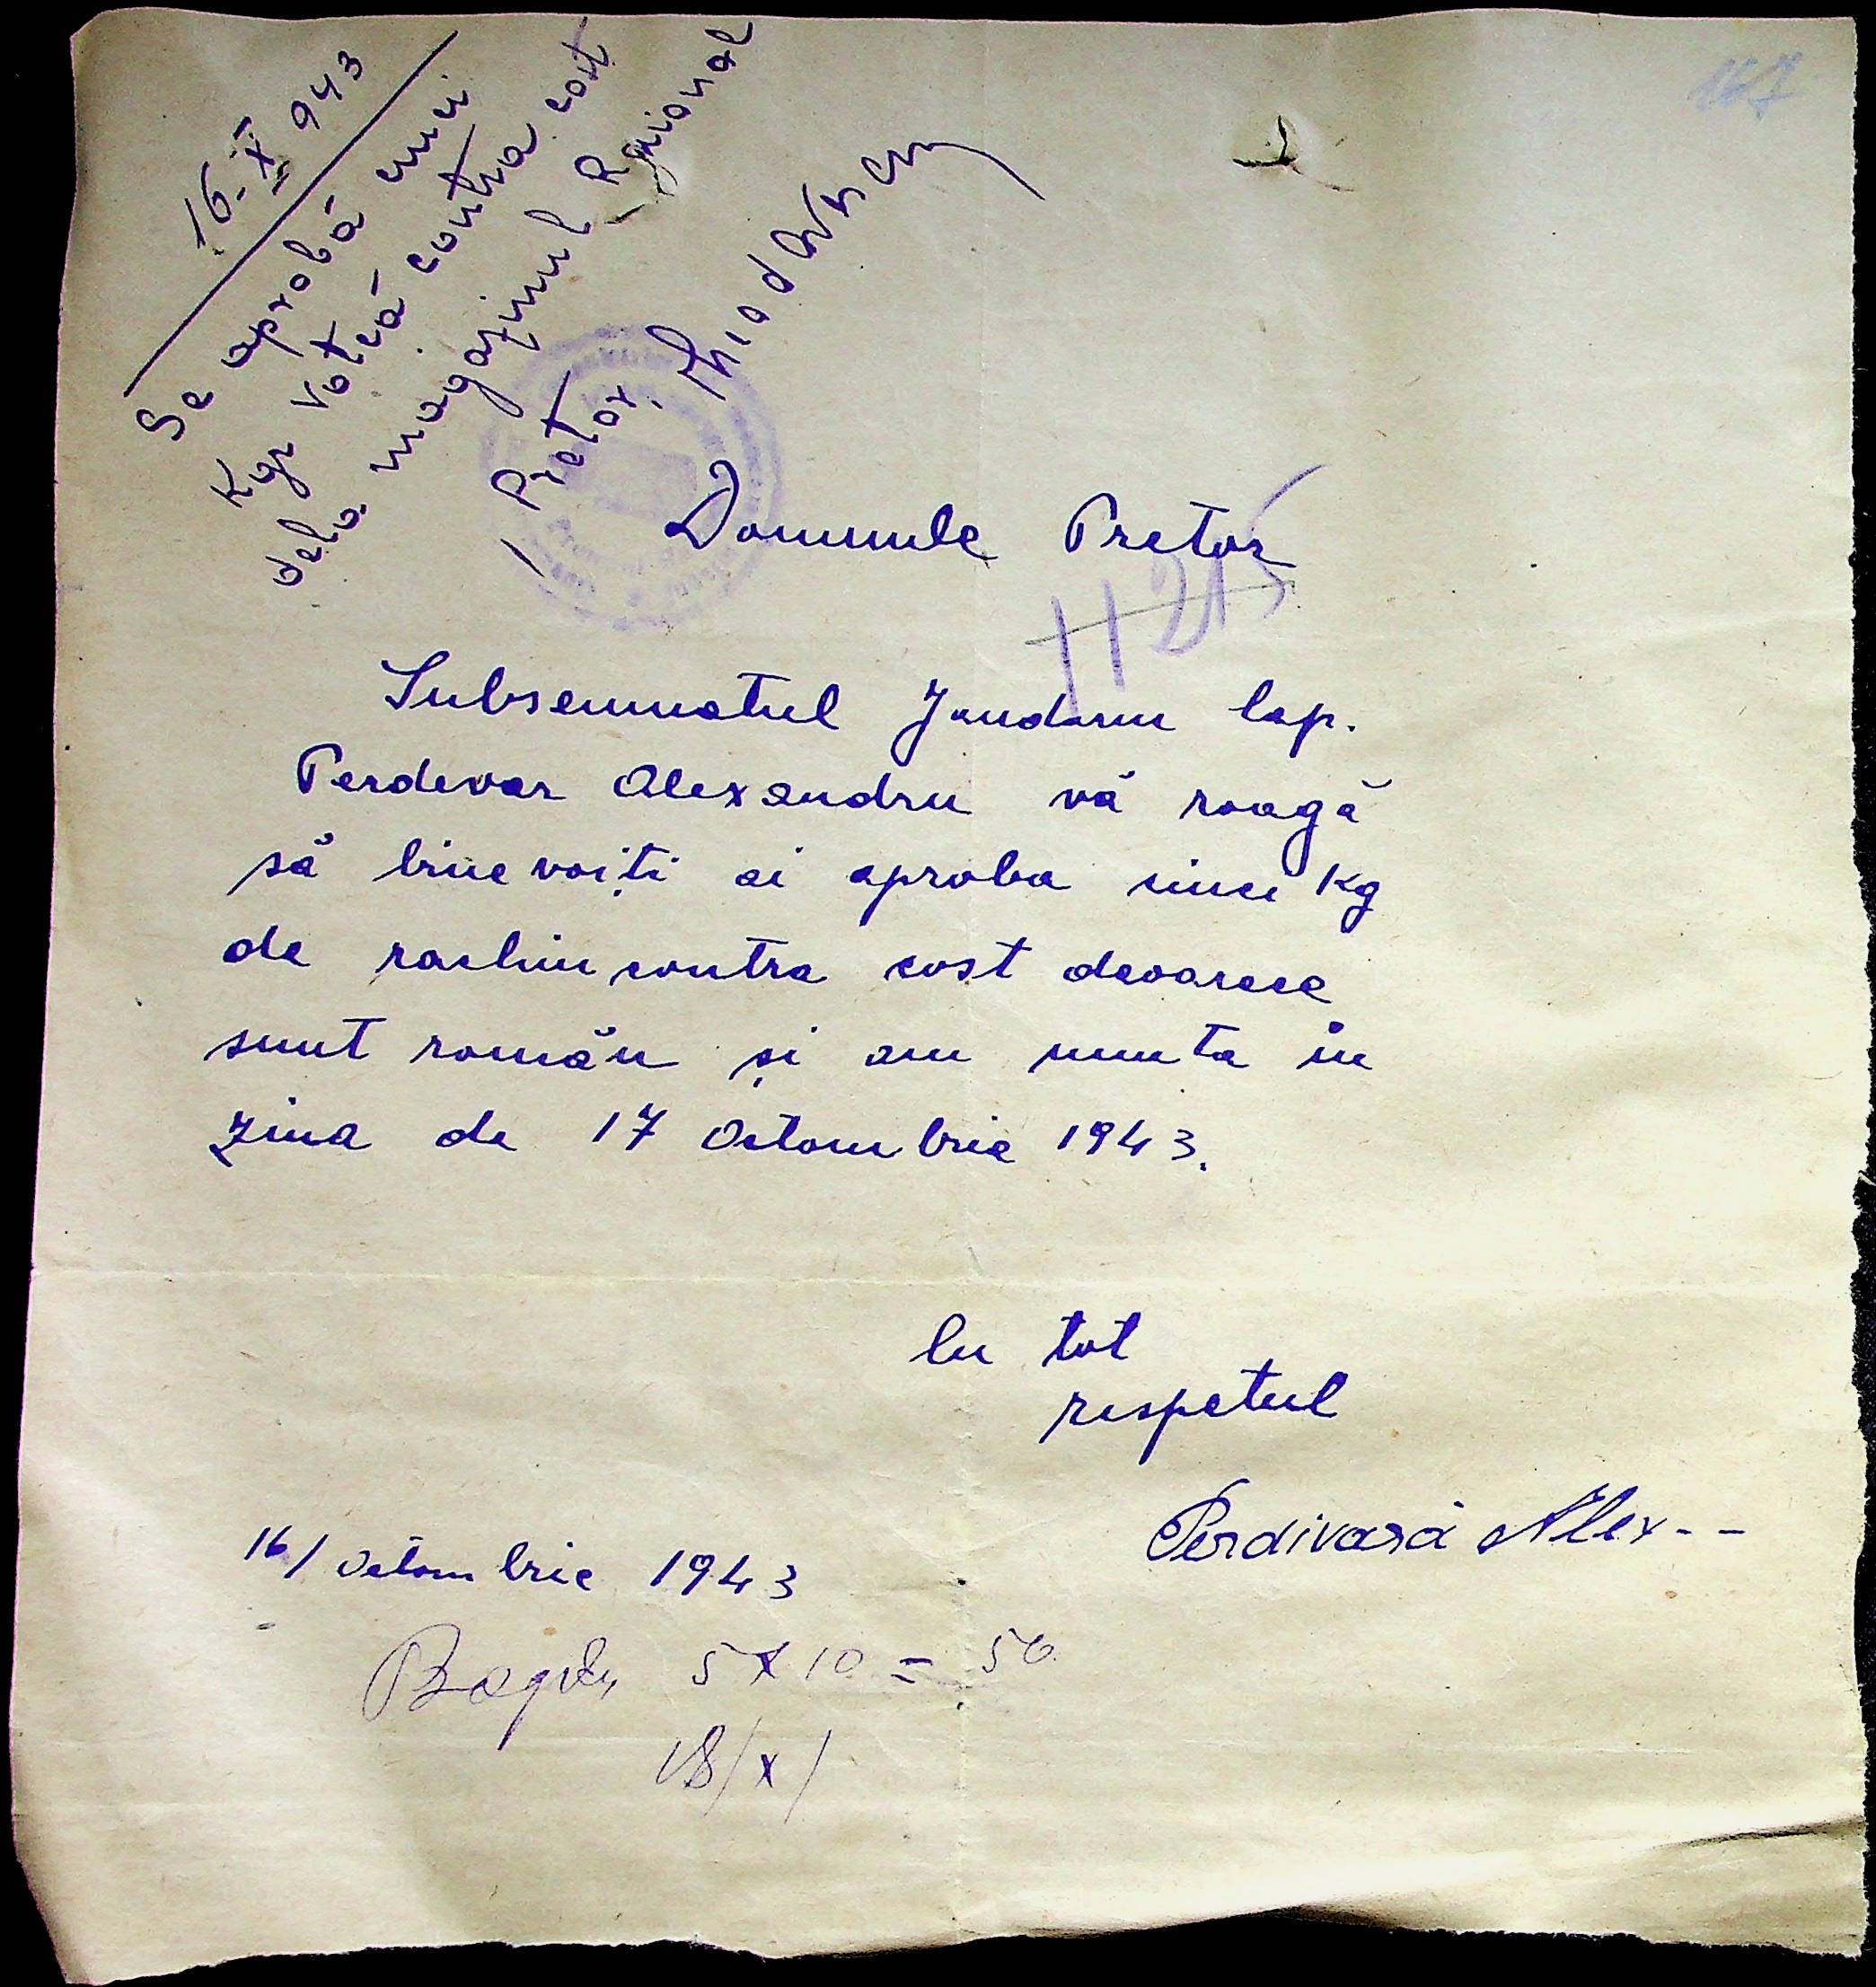 167
16-X 943
Se aprobă cinci
Kgr Votcă contra cost
dela magazinul Regional
Pretor,
Domnule Pretor
11215
Subsemnatul Jandarm Cap.
Perdevar Alexandru vă roagă
să binevoiți ai aproba cinci Kg
de rachiu contra cost deoarece
sunt român și am nunta în
ziua de 17 Octombrie 1943.
Cu tot
respetul
Perdivară Alex--
16/ Octombrie 1943
5 X 10 = 50
18/X/